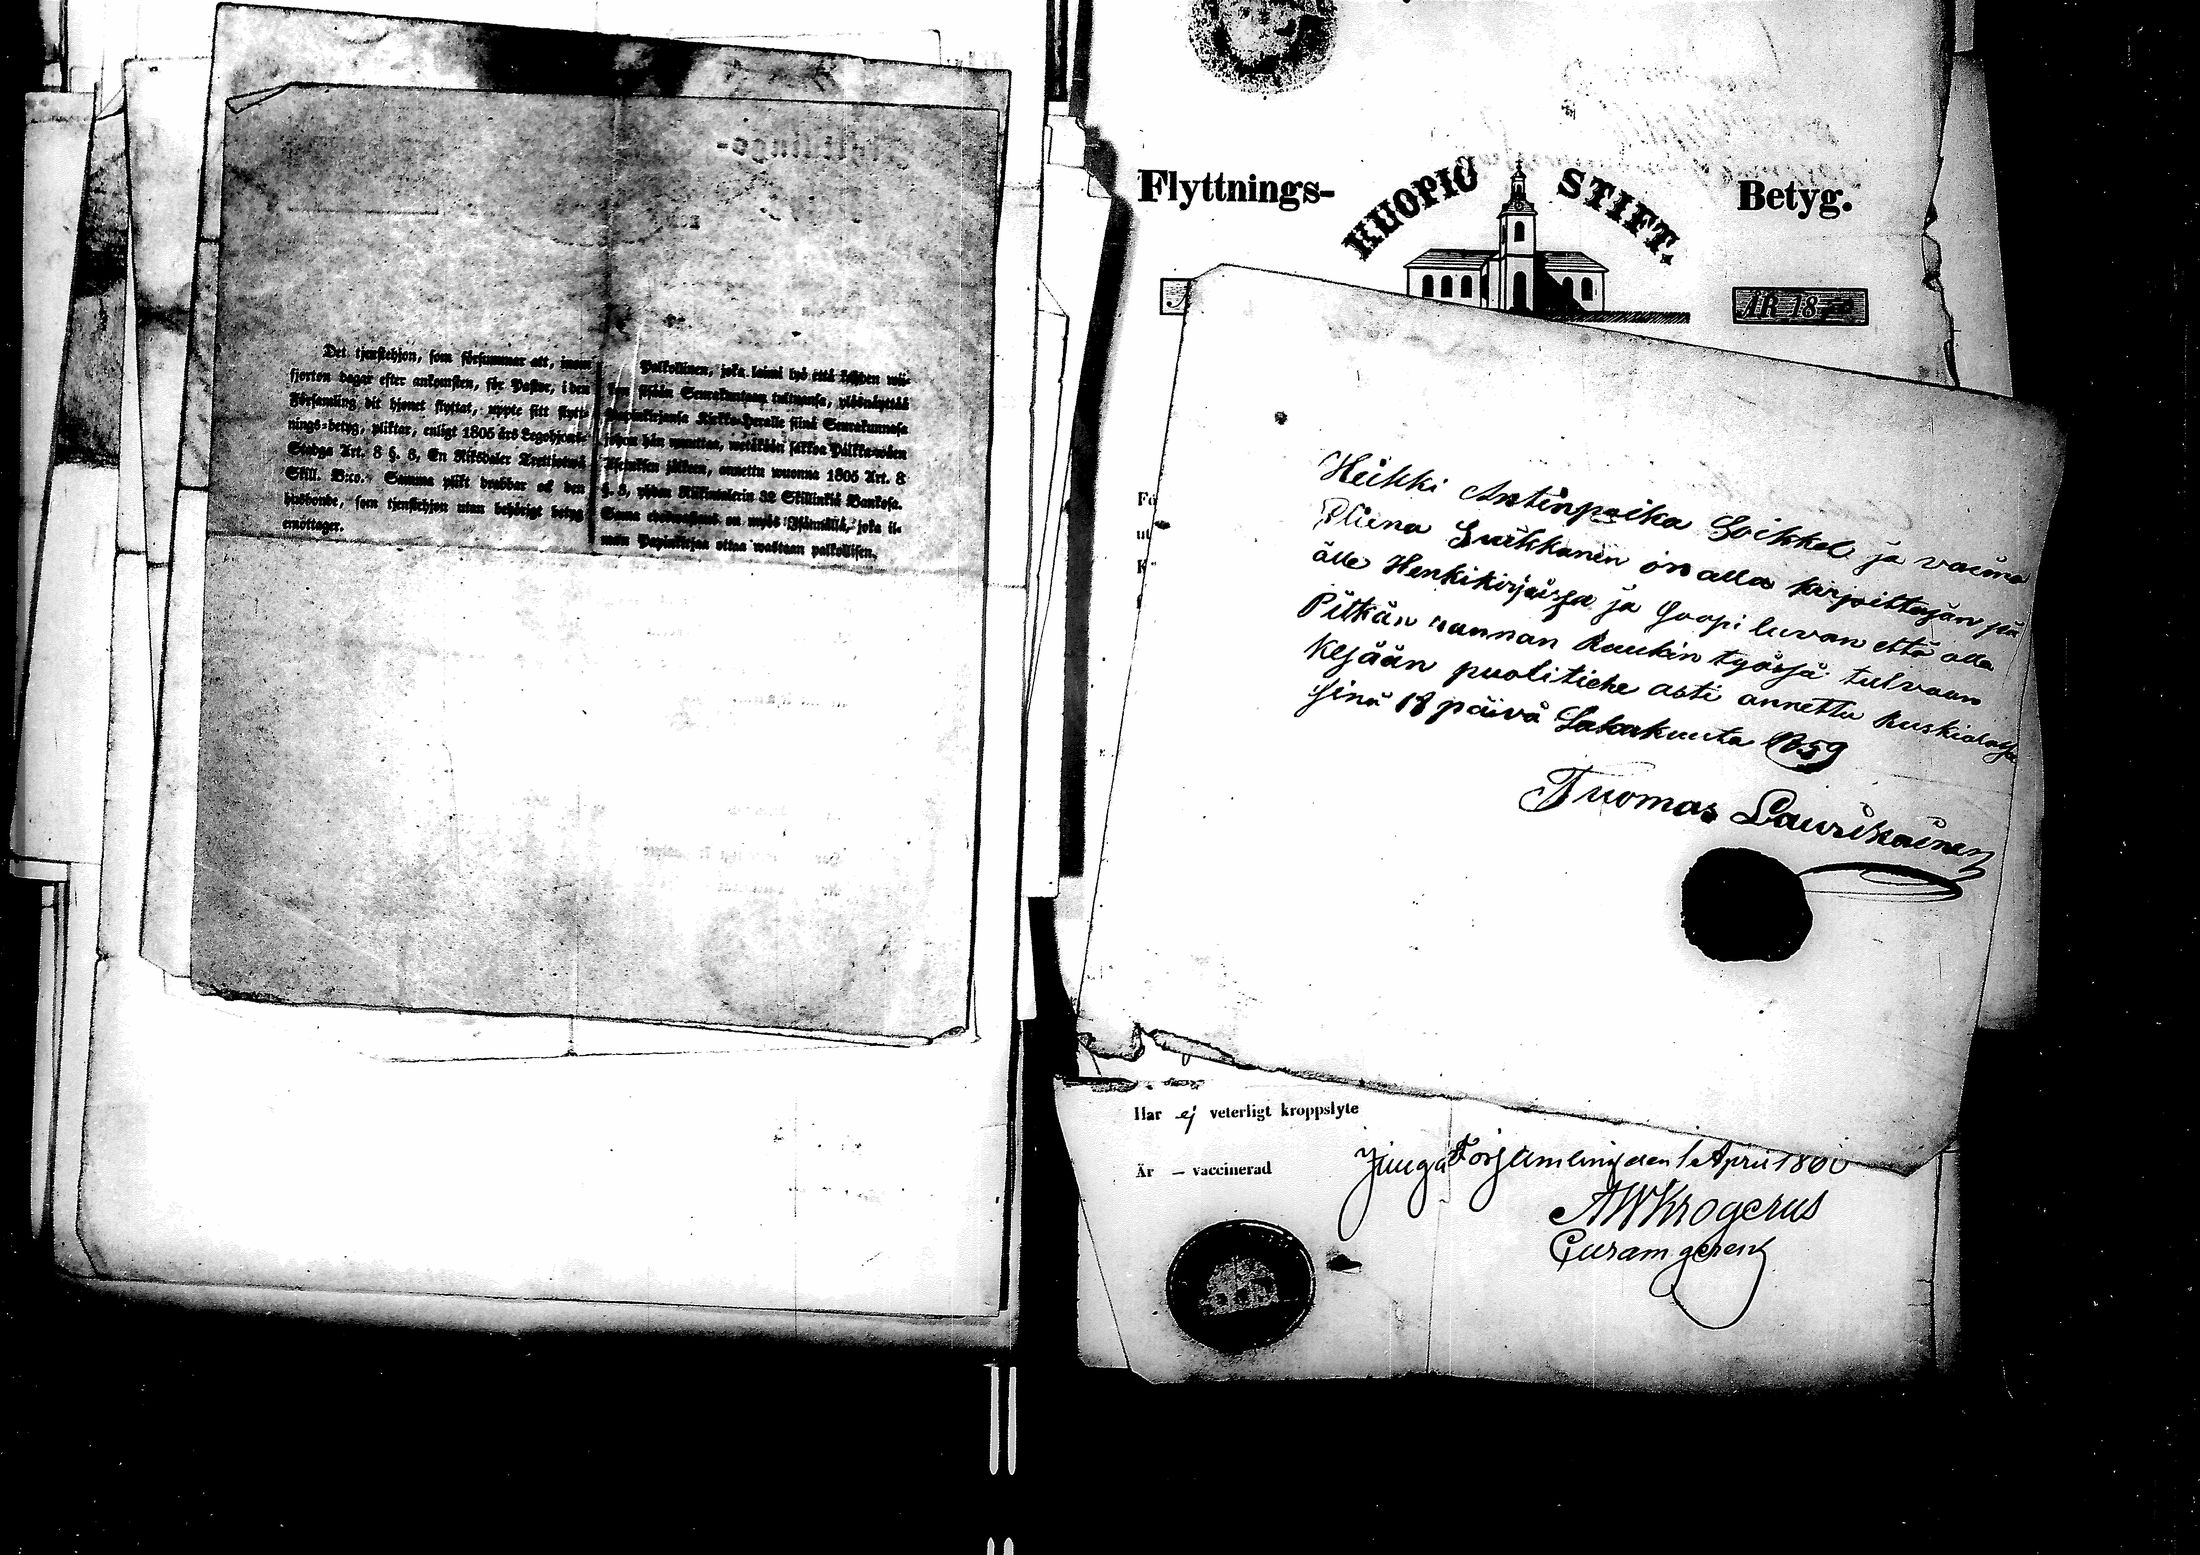 Det tjenstehjon, som försummar att, inom
fjorton dagar efter ankomsten, för Pastor, i den
Församling dit hjonet flyttat, uppte sitt flytt-
nings-betyg, pliktar, enligt 1805 års Legohjons-
Stadga Art. 8 §. 3, En Riksdaler Trettiotwå
Skill. B:co. Samma plikt drabbar ock den
husbonde, som tjenstehjon utan behörigt betyg
emottager.
Palkollinen, joka laimi lyö että kahden wii-
kon sisään Seurakuntaan tultuansa, ylösnäyttää
Papinkirjansa Kirkko-Herralle siinä Seurakunnasa
johon hän muuttaa, wetäkään sakkoa Palkka-wäen
Asetuksen jälkeen, annettu wuonna 1805 Art. 8
§. 3, yhden Riikintalerin 32 Skillinkiä Bankosa.
Sama edeswastaus on myös Isännällä, joka il-
man Papinkirjaa ottaa wastaan palkollisen.
Flyttnings- KUOPIO STIFT. Betyg.
ÅR 18
Heikki Antinpoika Soikkel ja vaimo
Pliena Suikkanen on alla kirjoittajan pä
älle Henkikirjaissa ja Saapi luvan että olla
Pitkän rannan Raukin työssä tulvaan
Kesään puolitiehe asti annettu Ruskialassa
sinä 18 päivä Lokakuuta 1859
Tuomas Laurikainen
Har ej veterligt kroppslyte
Är – vaccinerad
Juuga Församling den 1 April 1860
AWKrogerus